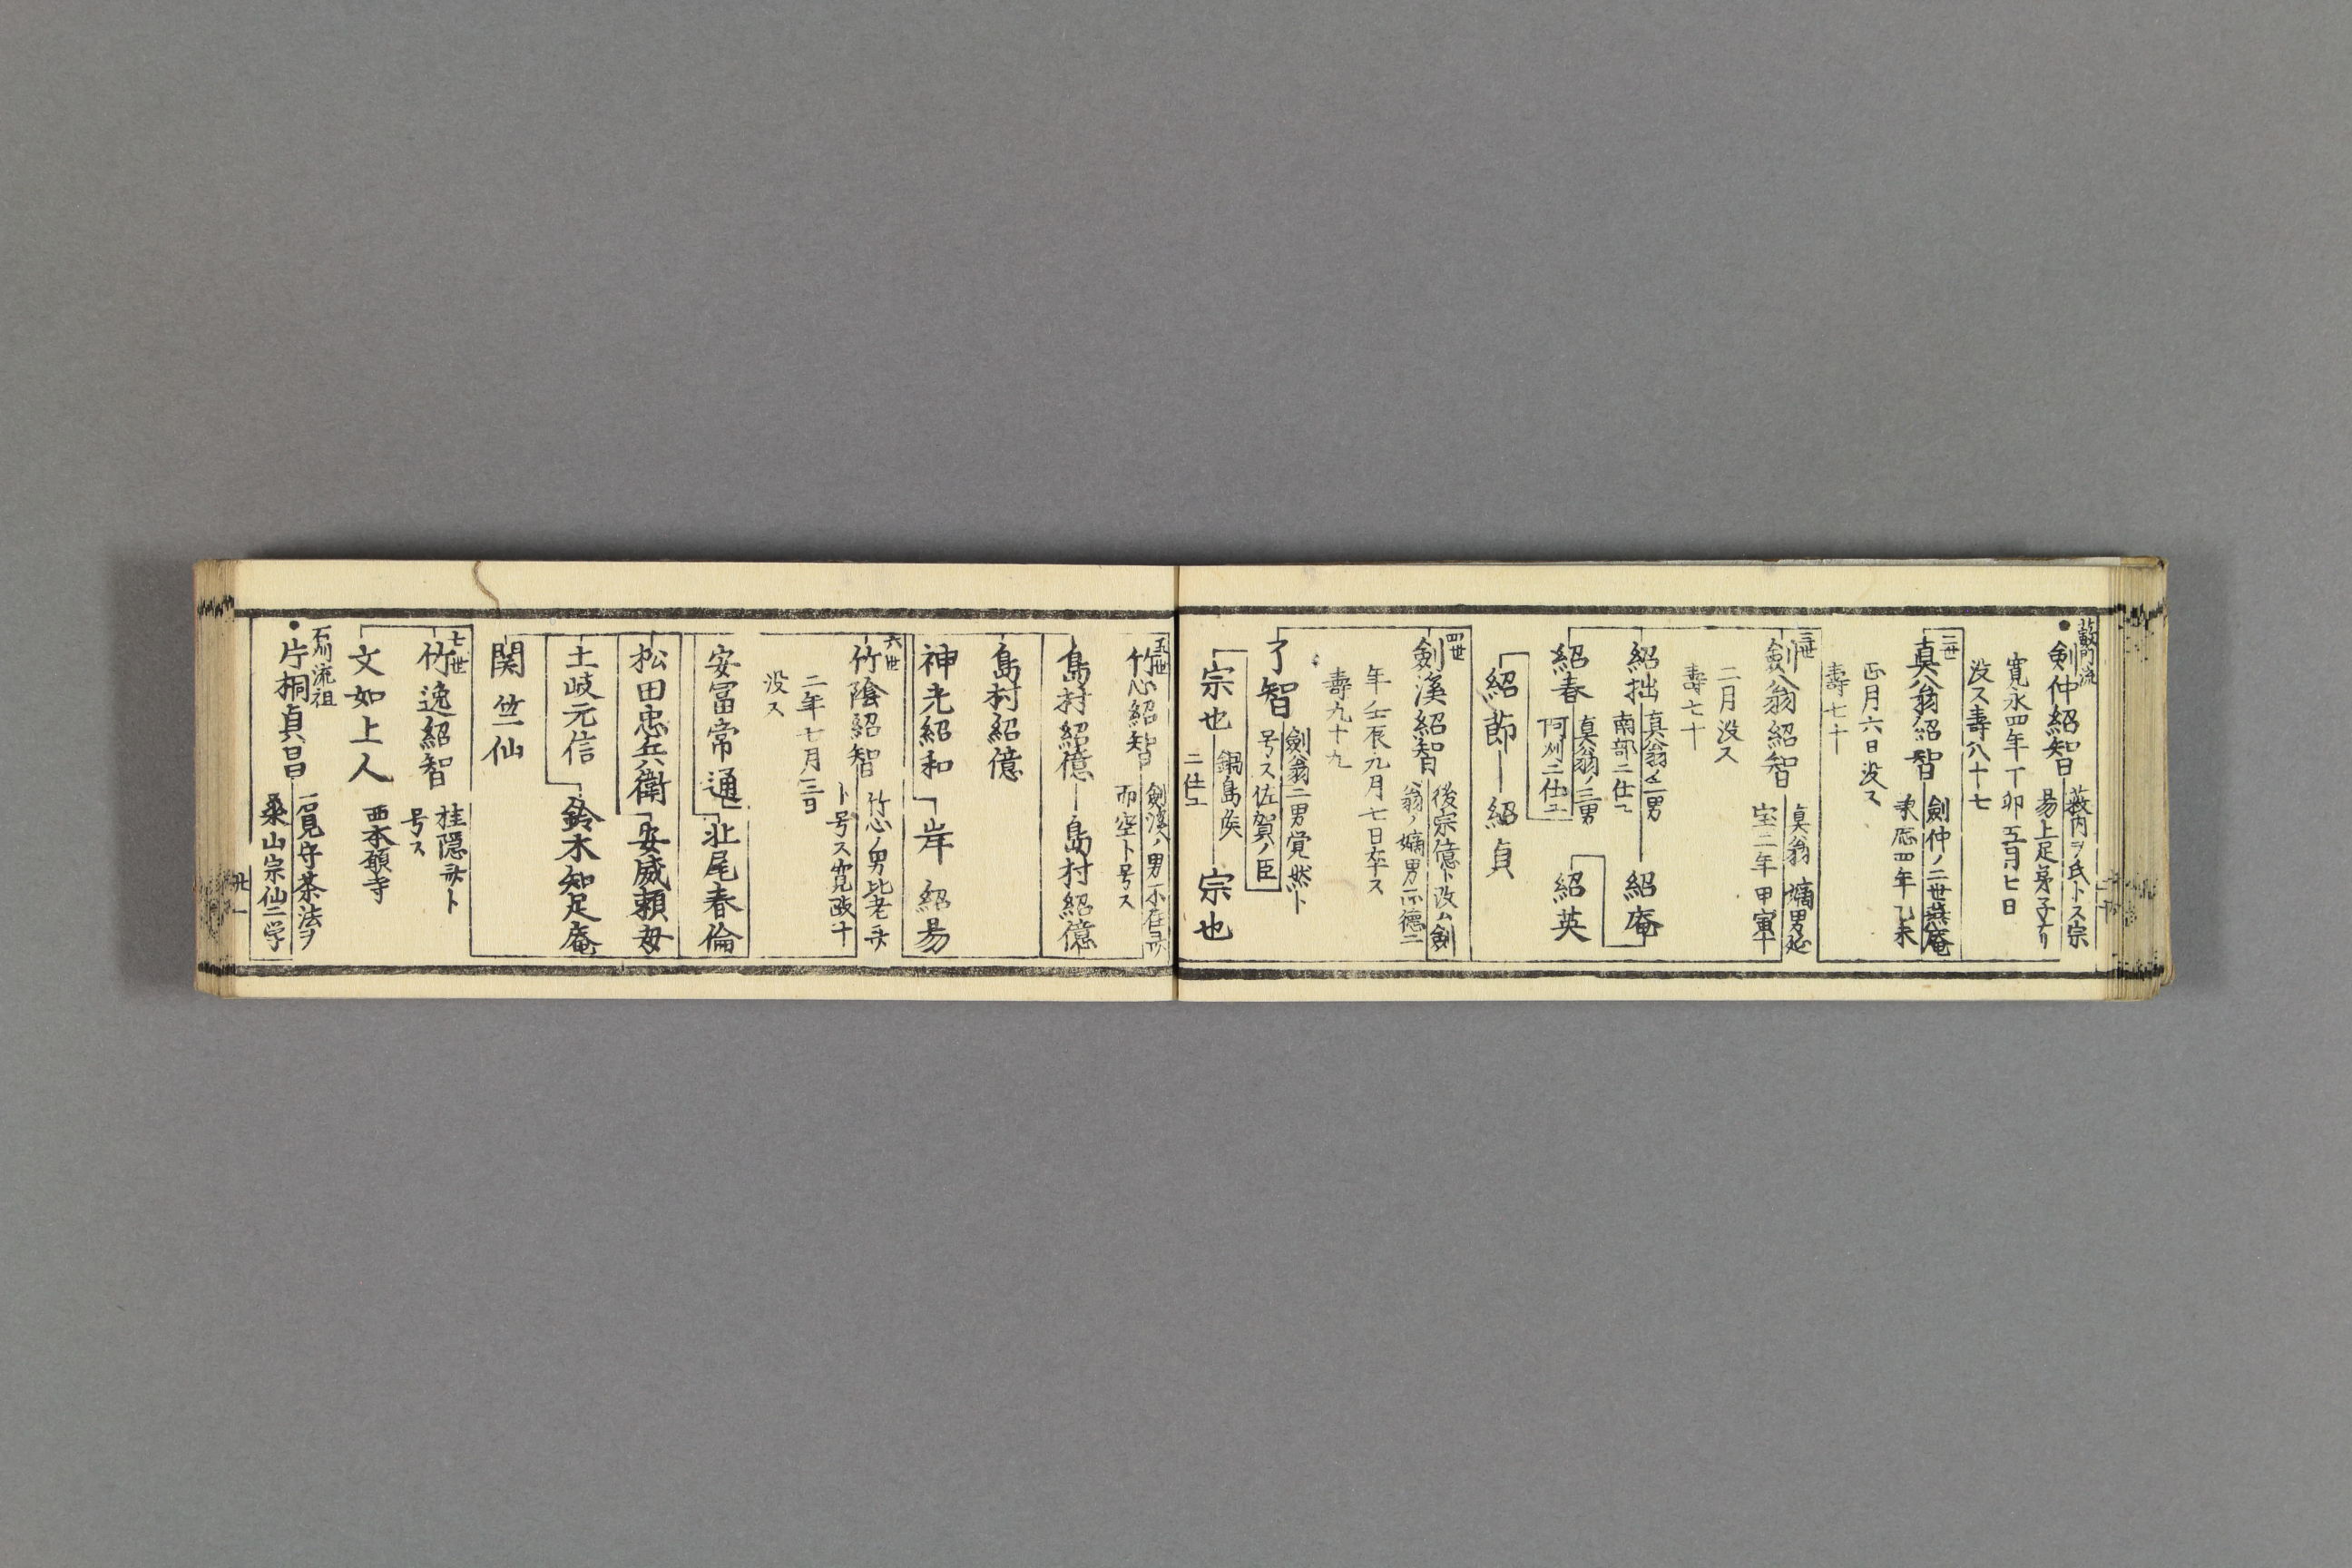 藪内流
●剣仲紹智
藪内ヲ氏トス宗
易上足弟子ナリ
寛永四年丁卯五月七日
没ス壽八十七
二世
真翁紹智
劍仲ノ二世燕庵
承応四年乙未
正月六日没ス
壽七十
三世
劍翁紹智
真翁嫡男延
宝二年甲寅十
二月没ス
壽七十
紹拙
真翁ノ二男
南部ニ仕フ
紹庵
紹春
真翁ノ三男
阿州ニ仕ユ
紹英
紹節
紹貞
四世
劍渓紹智
後宗億ト改ム劍
翁ノ嫡男正徳二
年壬辰九月七日卒ス
壽九十九
了智
劍翁二男覚然ト
号ス佐賀ノ臣
宗也
鍋島侯
ニ仕ユ
宗也
五世
竹心紹智
劍渓ノ男不在斉
而空ト号ス
島村紹億
島村紹億
島村紹億
神光紹和
岸紹易
六世
竹陰紹智
竹心ノ男比老斉
ト号ス寛政十
二年七月三日
没ス
安冨常通
北尾春倫
松田忠兵衛
安威頼母
土岐元信
鈴木知足庵
関竺仙
七世
竹逸紹智
桂隠斉ト
号ス
文如上人
西本願寺
石州流祖
●片桐貞昌
一覚守茶法ヲ
桑山宗仙ニ学
廿一